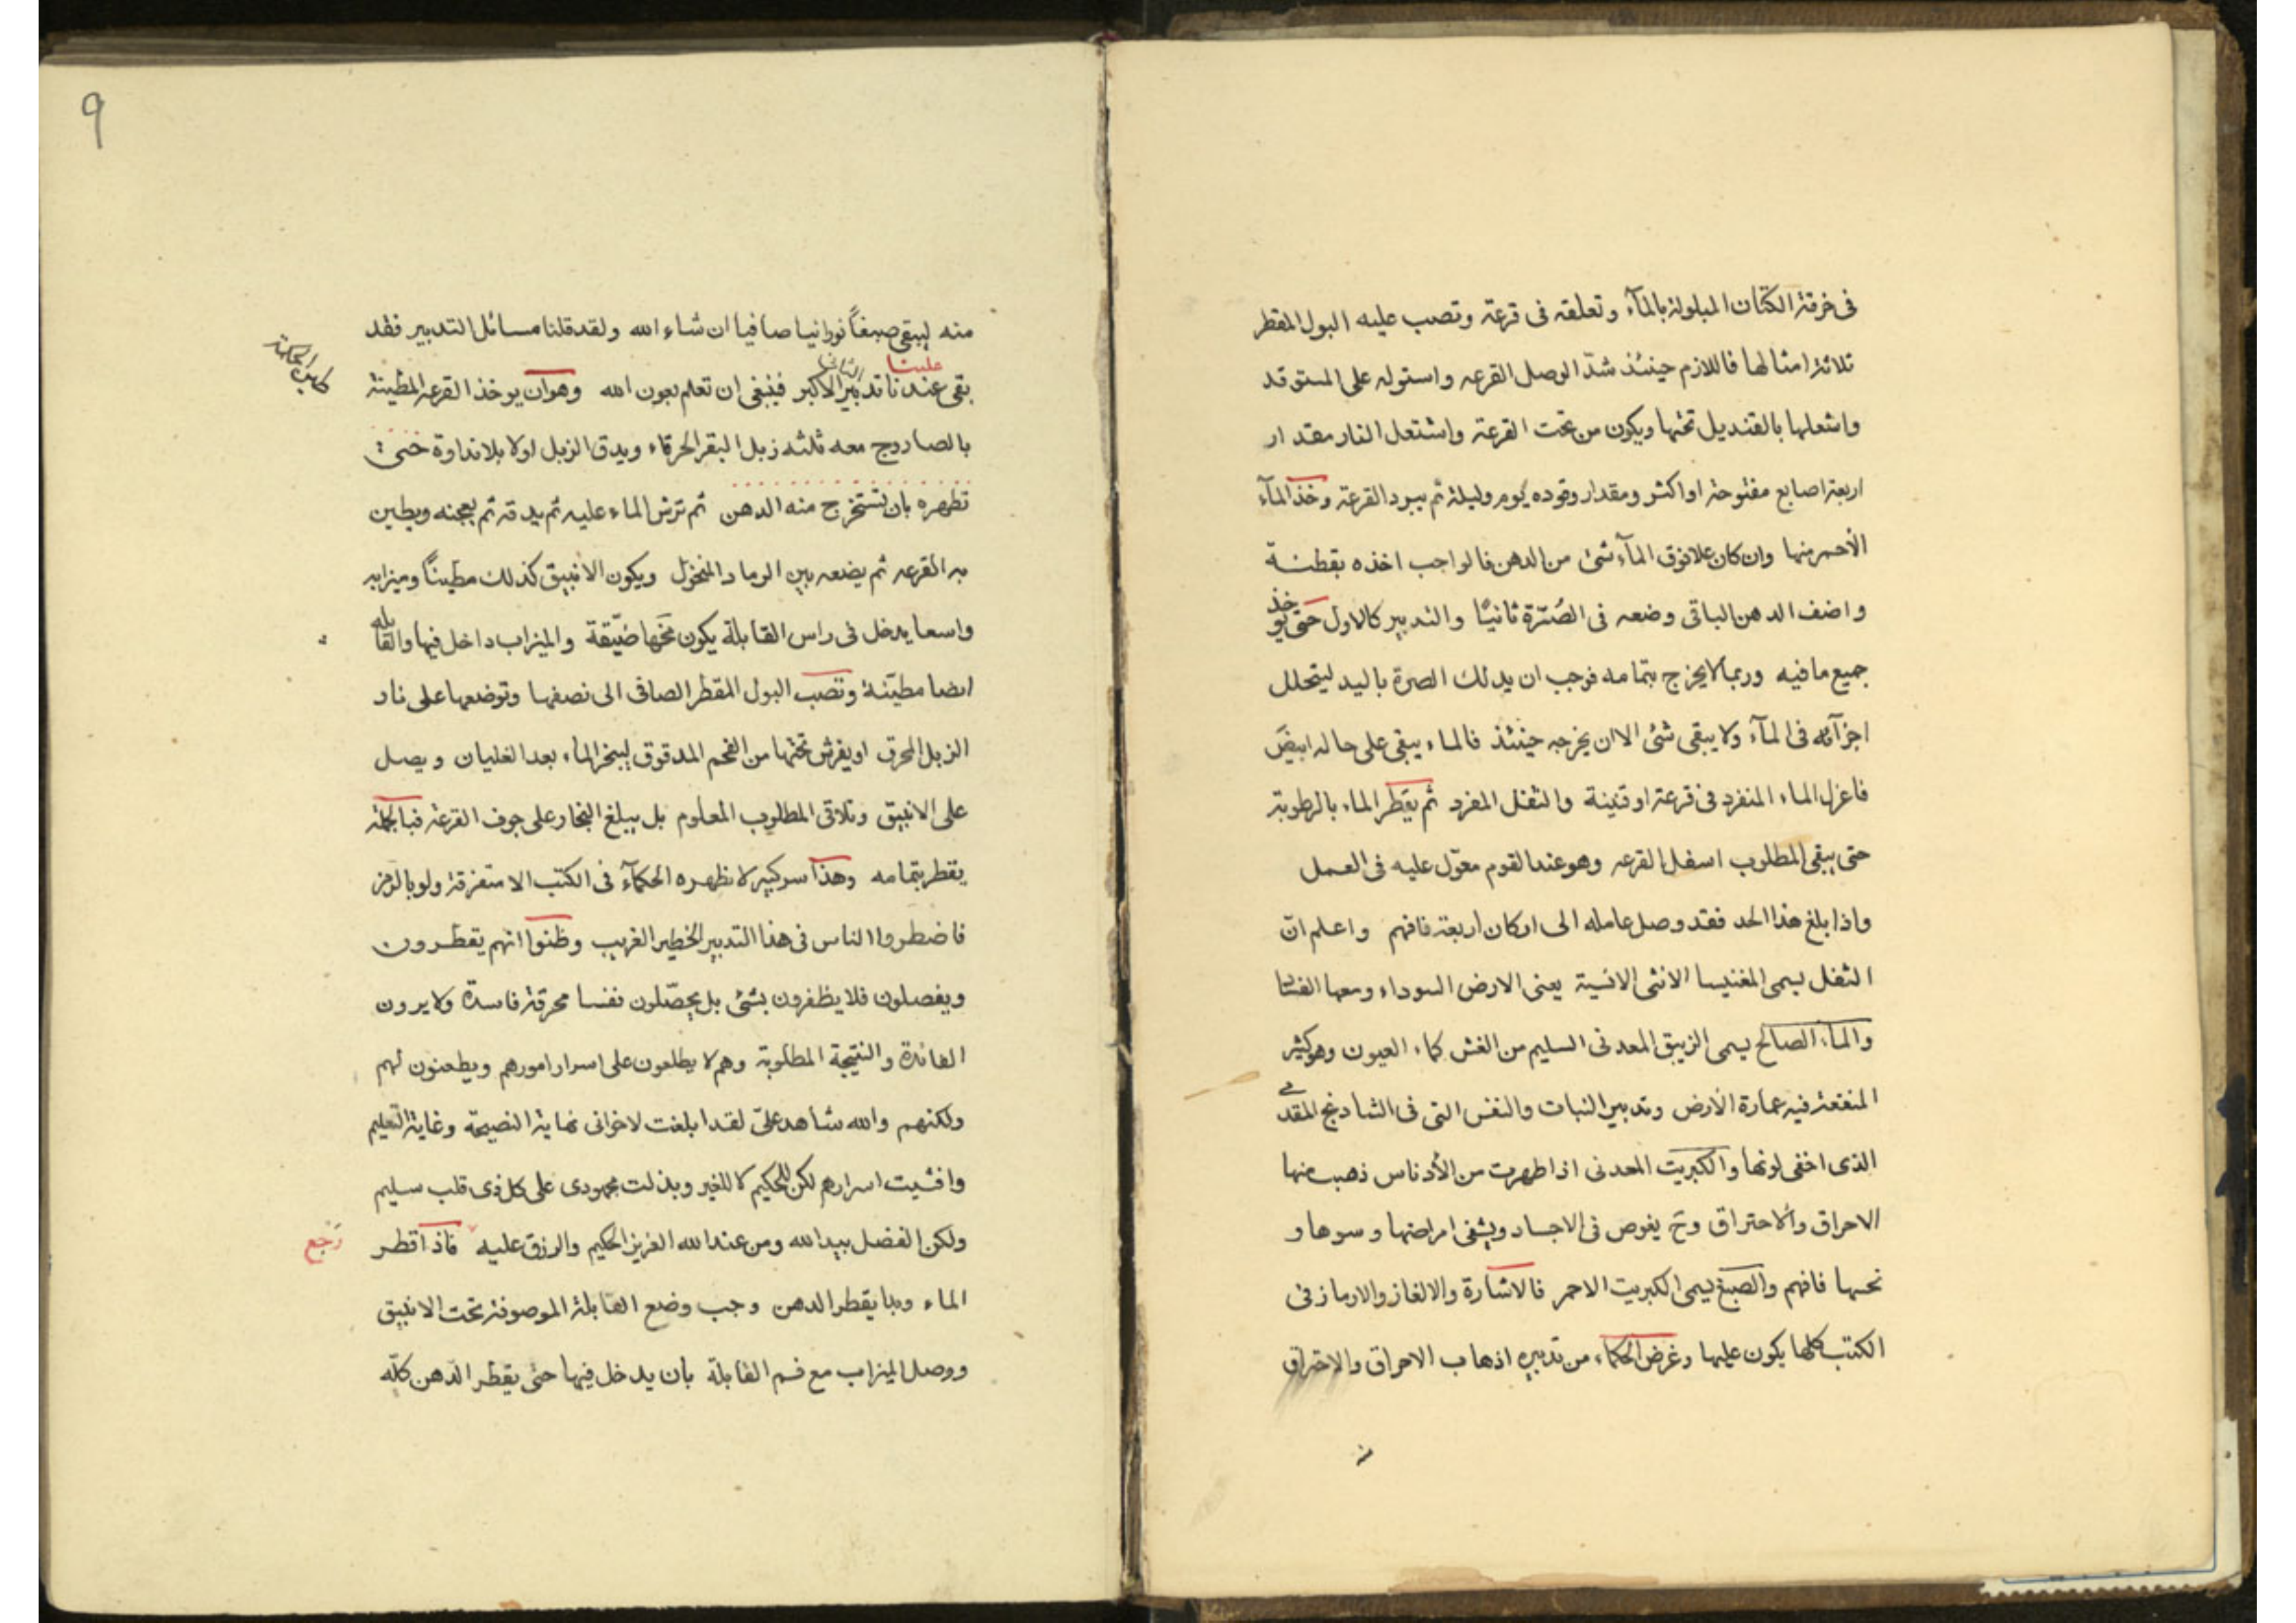 فى خرقة الكتان المبلولة بالمآء وتعلقه فى قرعة وتصب عليه البول المقطر
ثلاثة امثالها فاللازم حينئذ شدّ الوصل القرعه واستوله على المستوقد
واشعلها بالقنديل تحتها ويكون من تحت القرعة واشتعل النار مقدار
اربعة اصابع مفتوحة او اكثر ومقدار وقوده يوم وليلة ثم يبرد القرعة وخذ المآء
الأحمر منها وان كان علا فوق المآء شئ من الدهن فالواجب اخذه بقطنة
واضف الدهن الباقى وضعه فى الصُرّة ثانيًا والتدبير كالاول حتى يوخذ
جميع ما فيه وربما لا يخرج بتمامه فوجب ان يدلك الصرة باليد ليتحلل
اجزآئه فى المآء ولا يبقى شئ الا ان يخرجه حينئذ فالماء يبقى على حاله ابيضَ
فاعزل الماء المنفرد فى قرعة او قنينة والثفل المفرد ثم يقطر الماء بالرطوبة
حتى يبقى المطلوب اسفل القرعه وهو عند القوم معوّل عليه فى العمل
واذا بلغ هذا الحد فقد وصل عامله الى اركان اربعة فافهم واعلم انّ
الثفل يسمى المغنيسا الانثى الانسية يعنى الارض السوداء ومعها
والماء الصالح يسمى الزيبق المعدنى السليم من الغش كماء العيون وهو كثير
المنفعة فيه عمارة الأرض وتدبير النبات والنفس التى فى الشادنج المقد
الذى اخفى لونها والكبريت المعدنى اذا طهرت من الأدناس ذهب منها
الاحراق والاحتراق وحَ يغوص فى الاجساد ويشفى امراضها وسوها و
نحسها فافهم والصبغ يسمى الكبريت الاحمر فالاشارة والالغاز والارماز فى
الكتب كلها يكون عليها وغرض الحكماء من تدبيره اذهاب الاحراق والاحتراق
٩
منه ليبقى صبغاً نورانيا صافيا ان شاء الله ولقد قلنا مسائل التدبير فقد
علينا
بقى عندنا تدبير الاكبر فينبغى ان تعلم بعون الله وهو ان يوخذ القرعة المطينة
بالصاروج معه ثلثه زبل البقر الحرقاء ويدق الزبل اولا بلا نداوة حتى
تطهره بان تستخرج منه الدهن ثم ترش الماء عليه ثم يدقه ثم يعجنه ويطين
به القرعه ثم يضعه بين الرماد المنخول ويكون الانبيق كذلك مطيناً وميزابه
واسعا يدخل فى راس القابلة يكون مخها ضيّقة والميزاب داخل فيها والقابله
ايضا مطيّنة وتصب البول المقطر الصافى الى نصفها وتوضعها على نار
الزبل المحرق او يفرش تحتها من الفحم المدقوق ليبخر الماء بعد الغليان ويصل
على الانبيق وتلاقى المطلوب المعلوم بل يبلغ البخار على جوف القرعة فبالجملة
يقطر بتمامه وهذا سر كبير لا نظهره الحكمآء فى الكتب الا متفرقة ولو بالرمز
فاضطروا الناس فى هذا التدبير الخطير الغريب وظنوا انهم يقطرون
ويفصلون فلا يظفرون بشئ بل يحصّلون نفسا محرقة فاسدة ولا يرون
الفائدة والنتيجة المطلوبة وهم لا يطلعون على اسرار امورهم ويطعنون لهم
ولكنهم والله شاهد علىّ لقد ابلغت لاخوانى نهاية النصيحة وغاية التعليم
وافشيت اسرارهم لكن للحكيم لا للغير وبذلت مجهودى على كل ذى قلب سليم
ولكن الفضل بيد الله ومن عند الله العزيز الحكيم والرزق عليه فاذا قطر
رجع
الماء وبدا يقطر الدهن وجب وضع القابلة الموصوفة تحت الانبيق
ووصل الميزاب مع فم القابلة بان يدخل فيها حتى يقطر الدهن كلّه